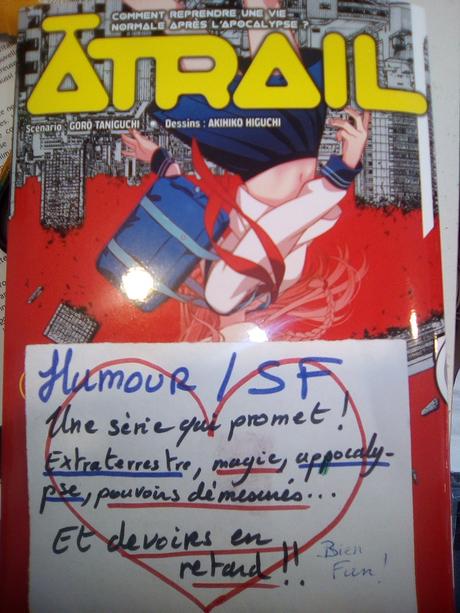 COMMENT REPRENDRE UNE VIE
NORMALE APRÈS L'APOCALYPSE ?
ĀTRAIL
Scenario : GORŌ TANIGUCHI Dessins : AKIHIKO HIGUCHI
Humour / SF
Une série qui promet !
Extraterrestre, magie, appocaly-
pse, pouvoirs démesurés...
Et devoirs en
retard !!
Bien
Fun !